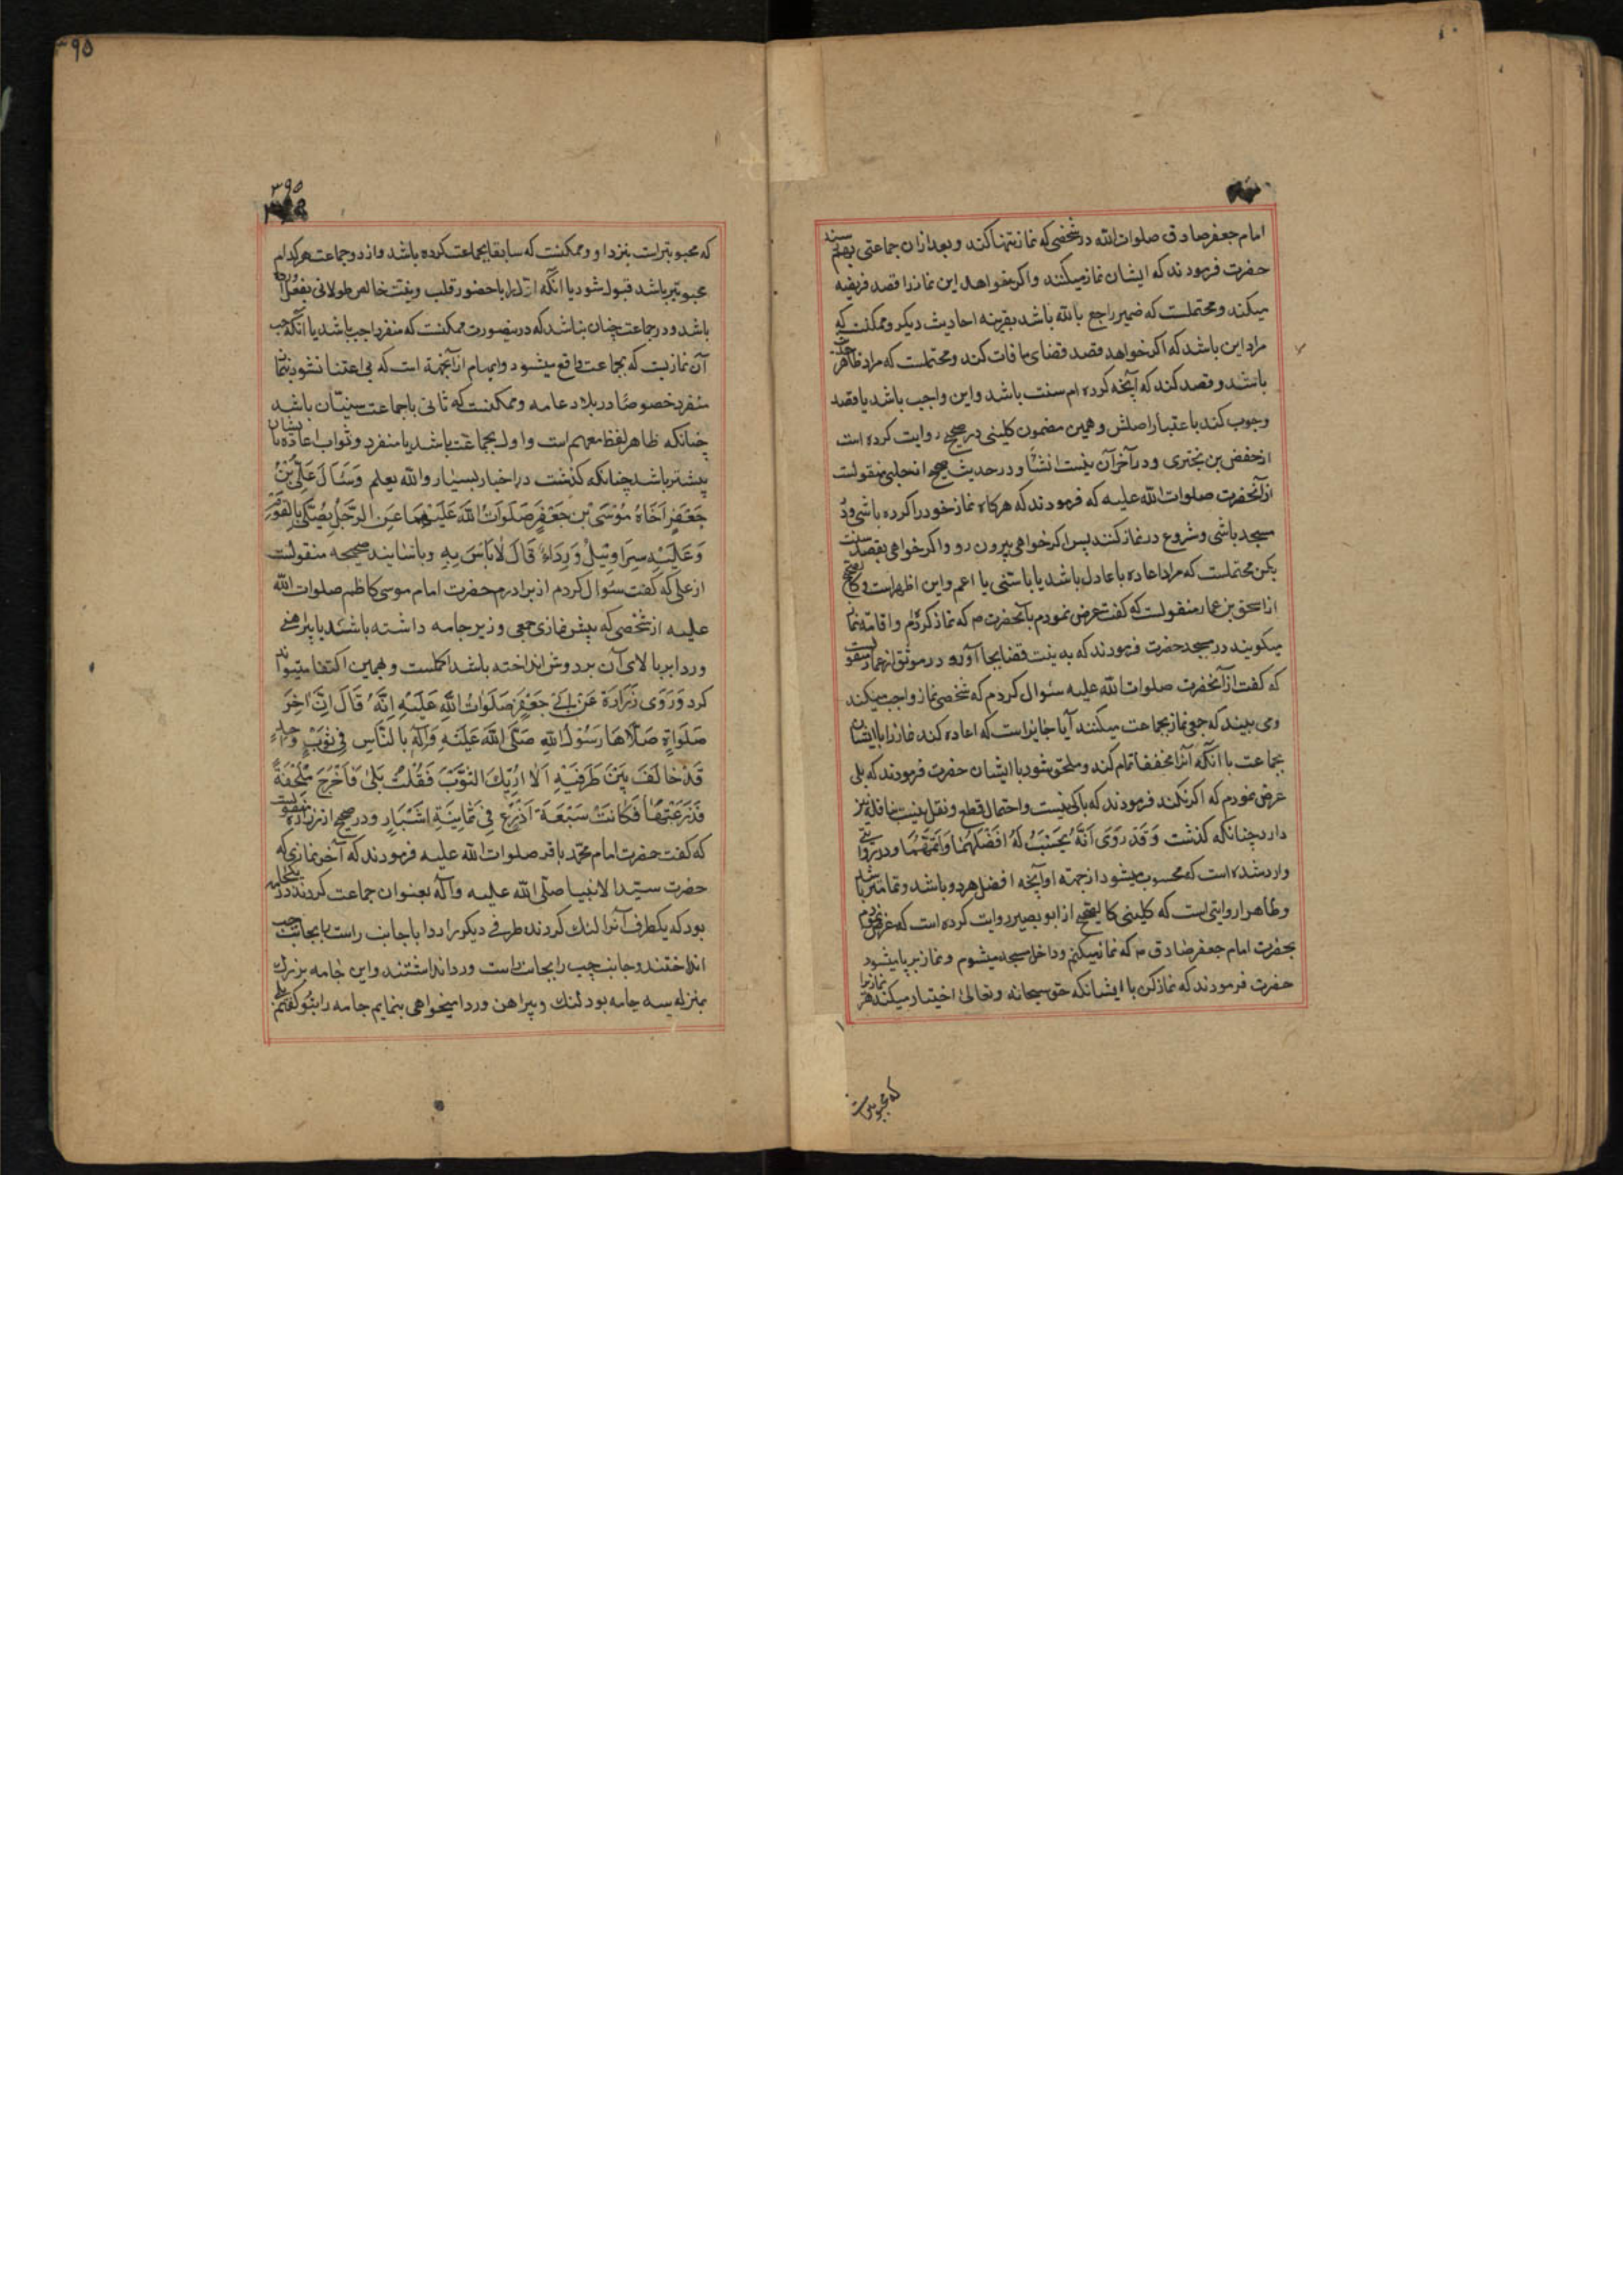 امام جعفر صادق صلوات الله در شخصی که نماز تنها کند و بعد ازان جماعتی بهم رسند
حضرت فرمودند که ایشان نماز میکنند و اگر خواهد این نماز را قصد فریضه
میکند و محتملست که ضمیر راجع بالله باشد بقرینه احادیث دیگر و ممکنست که
مراد این باشد که اگر خواهد قصد قضای ما فات کند و محتملست که مراد ظاهر
باشد و قصد کند که آنچه کرده ام سنت باشد و این واجب باشد یا قصد
وجوب کند باعتبار اصلش و همین مضمون کلینی در صحیح روایت کرده است
از حفص بن بختری و در آخر آن نیست انشأ و در حدیث صحیح از حلبی منقولست
از آنحضرت صلوات الله علیه که فرمودند که هرکاه نماز خود را کرده باشی و در
مسجد باشی و شروع در نماز کنند پس اگر خواهی بیرون رو و اگر خواهی بقصد سنت
بکن محتملست که مراد اعاده با عادل باشد یا با سنی یا اعم و این اظهر است و کالصحیح
از اسحق بن عمار منقولست که گفت عرض نمودم بآنحضرت م که نماز کرده ام و اقامه نماز
میگویند در مسجد حضرت فرمودند که به نیت قضا بجا آور و در موثق از عمار منقولست
که گفت از آنحضرت صلوات الله علیه سئوال کردم که شخصی نماز واجب میکند
و می بیند که جمعی نماز بجماعت میکنند آیا جایز است که اعاده کند نماز را با ایشان
بجماعت با آنکه آنرا مخففا تمام کند و ملحق شود با ایشان حضرت فرمودند که بلی
عرض نمودم که اگر نکند فرمودند که باکی نیست و احتمال قطع و نقل بنیت نافله نیز
دارد چنانکه گذشت وَقَد رَوَی اَنَّهُ یُحسَبُ لَهُ اَفضَلُهُمَا وَاَتَمُّهُمَا و در روایتی
وارد شده است که محسوب میشود از جهته او آنچه افضل هر دو باشد و تمامتر باشد
و ظاهرا روایتی است که کلینی کالصحیح از ابو بصیر روایت کرده است که عرض نمودم
بحضرت امام جعفر صادق م که نماز میکنم و داخل مسجد میشوم و نماز برپا میشود
حضرت فرمودند که نماز کن با ایشان که حق سبحانه و تعالی اختیار میکند هر نماز را
که محبوبتراست
۳۹۵
۳۹۵
که محبوبتر است بنزد او و ممکنست که سابقا بجماعت کرده باشد و از دو جماعت هر کدام
محبوبتر باشد قبول شود یا آنکه اول را با حضور قلب و نیت خالص طولانی بفعل آورده
باشد و در جماعت چنان نباشد که درینصورت ممکنست که منفرد احب باشد یا آنکه احب
آن نمازیست که بجماعت واقع میشود و ابهام از آنجهة است که بی اعتنا نشود بنماز
منفرد خصوصًا در بلاد عامه و ممکنست که ثانی با جماعت سنیان باشد
چنانکه ظاهر لفظ معهم است و اول بجماعت باشد یا منفرد و ثواب اعاده با ایشان
بیشتر باشد چنانکه گذشت در اخبار بسیار والله یعلم وَسَئَالَ عَلِیُّ بنُ
جَعفَرٍ اَخَاهُ مُوسَی بنَ جَعفَرٍ صَلَوَاتُ اللهِ عَلَیهِمَا عَنِ الرَّجُلِ یُصَلِّی بِالقَومِ
وَعَلَیهِ سَرَاوِیلُ وَرِدَاءٌ قَالَ لاَ بَاسَ بِهِ و باسانید صحیحه منقولست
از علی که گفت سئوال کردم از برادرم حضرت امام موسی کاظم صلوات الله
علیه از شخصی که پیش نمازی جمعی و زیرجامه داشته باشد یا پیراهنی
و ردا بر بالای آن بر دوش انداخته باشد اکملست و بهمین اکتفا میتواند
کرد وَرَوَی زُرَارَة عَن اَبِی جَعفَرٍ صَلَوَاتُ اللهِ عَلَیهِ اِنَّهُ قَالَ اِنَّ اٰخِرَ
صَلَوَاةٍ صَلَّاهَا رَسُولُ اللهِ صَلَّی اللهُ عَلَیهِ وَآلِهِ بِالنَّاسِ فِی ثَوبٍ وَاحِدٍ
قَد خَالَفَ بَینَ طَرَفَیهِ اَلاَ اُرِیكَ الثَّوبَ فَقُلتُ بَلیٰ فَاَخرَجَ مِلحَفَةً
فَذَرَعتُهَا فَکَانَت سَبعَةَ اَذرُعٍ فِی ثَمَانِیَةِ اَشبَارٍ و در صحیح از زراره منقولست
که گفت حضرت امام محمد باقر صلوات الله علیه فرمودند که آخر نمازی که
حضرت سید الانبیا صلی الله علیه وآله بعنوان جماعت کردند در یکجامه
بود که یکطرف آنرا لنك کردند و طرف دیگر را ردا با جانب راست را بجانب چپ
انداختند و جانب چپ را بجانب راست و ردا نداشتند و این جامه بزرك
بمنزله سه جامه بود لنك و پیراهن و ردا میخواهی بنمایم جامه را بتو گفتم بلی